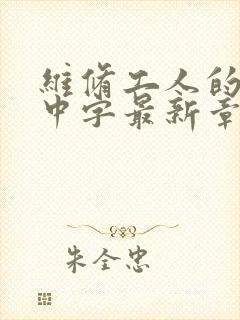 維脩工人的
中字最新章
朱全忠